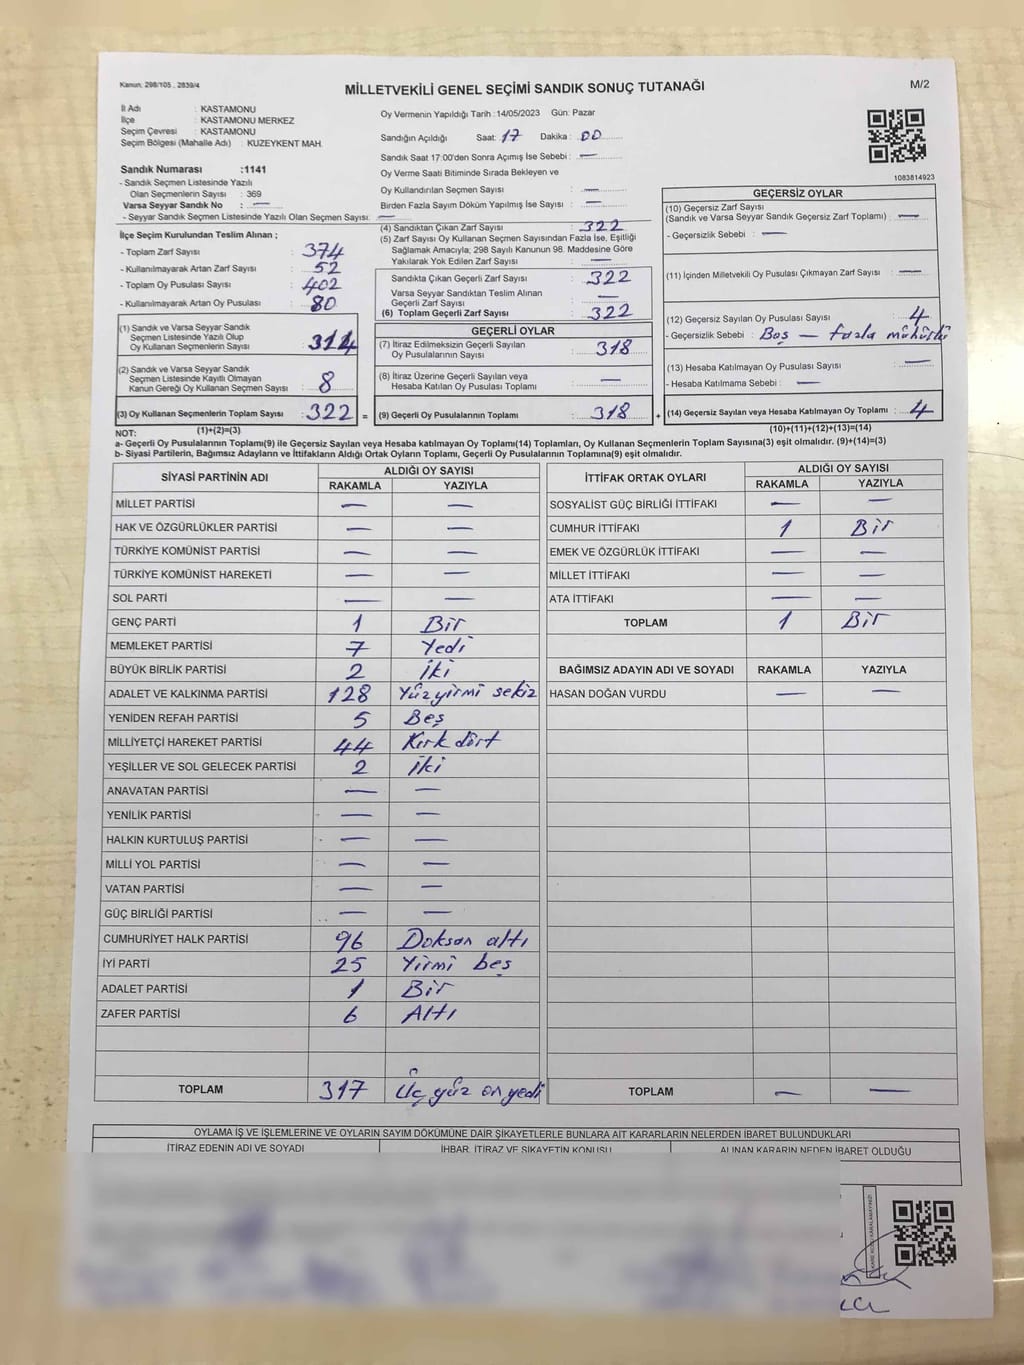 Kanun: 298/105 , 2839/4
MİLLETVEKİLİ GENEL SEÇİMİ SANDIK SONUÇ TUTANAĞI
M/2
İl Adı : KASTAMONU
İlçe : KASTAMONU MERKEZ
Seçim Çevresi : KASTAMONU
Seçim Bölgesi (Mahalle Adı) : KUZEYKENT MAH.
Oy Vermenin Yapıldığı Tarih :14/05/2023 Gün: Pazar
Sandığın Açıldığı Saat: 17 Dakika : 00
Sandık Saat 17:00'den Sonra Açımış İse Sebebi : —
Oy Verme Saati Bitiminde Sırada Bekleyen ve
Oy Kullandırılan Seçmen Sayısı : —
Birden Fazla Sayım Döküm Yapılmış İse Sayısı : —
1083814923
Sandık Numarası :1141
- Sandık Seçmen Listesinde Yazılı
Olan Seçmenlerin Sayısı : 369
Varsa Seyyar Sandık No : —
- Seyyar Sandık Seçmen Listesinde Yazılı Olan Seçmen Sayısı: —
İlçe Seçim Kurulundan Teslim Alınan ;
- Toplam Zarf Sayısı : 374
- Kullanılmayarak Artan Zarf Sayısı : 52
- Toplam Oy Pusulası Sayısı : 402
- Kullanılmayarak Artan Oy Pusulası : 80
(1) Sandık ve Varsa Seyyar Sandık
Seçmen Listesinde Yazılı Olup
Oy Kullanan Seçmenlerin Sayısı : 314
(2) Sandık ve Varsa Seyyar Sandık
Seçmen Listesinde Kayıtlı Olmayan
Kanun Gereği Oy Kullanan Seçmen Sayısı : 8
(3) Oy Kullanan Seçmenlerin Toplam Sayısı : 322 =
(1)+(2)=(3)
(4) Sandıktan Çıkan Zarf Sayısı : 322
(5) Zarf Sayısı Oy Kullanan Seçmen Sayısından Fazla İse, Eşitliği
Sağlamak Amacıyla; 298 Sayılı Kanunun 98. Maddesine Göre
Yakılarak Yok Edilen Zarf Sayısı : —
Sandıkta Çıkan Geçerli Zarf Sayısı : 322
Varsa Seyyar Sandıktan Teslim Alınan
Geçerli Zarf Sayısı : —
(6) Toplam Geçerli Zarf Sayısı : 322
GEÇERLİ OYLAR
(7) İtiraz Edilmeksizin Geçerli Sayılan
Oy Pusulalarının Sayısı : 318
(8) İtiraz Üzerine Geçerli Sayılan veya
Hesaba Katılan Oy Pusulası Toplamı : —
(9) Geçerli Oy Pusulalarının Toplamı : 318 +
GEÇERSİZ OYLAR
(10) Geçersiz Zarf Sayısı
(Sandık ve Varsa Seyyar Sandık Geçersiz Zarf Toplamı) : —
- Geçersizlik Sebebi : —
(11) İçinden Milletvekili Oy Pusulası Çıkmayan Zarf Sayısı : —
(12) Geçersiz Sayılan Oy Pusulası Sayısı : 4
- Geçersizlik Sebebi : Boş — fazla mühürlü
(13) Hesaba Katılmayan Oy Pusulası Sayısı : —
- Hesaba Katılmama Sebebi : —
(14) Geçersiz Sayılan veya Hesaba Katılmayan Oy Toplamı : 4
(10)+(11)+(12)+(13)=(14)
NOT:
a- Geçerli Oy Pusulalarının Toplamı(9) ile Geçersiz Sayılan veya Hesaba katılmayan Oy Toplamı(14) Toplamları, Oy Kullanan Seçmenlerin Toplam Sayısına(3) eşit olmalıdır. (9)+(14)=(3)
b- Siyasi Partilerin, Bağımsız Adayların ve İttifakların Aldığı Ortak Oyların Toplamı, Geçerli Oy Pusulalarının Toplamına(9) eşit olmalıdır.
SİYASİ PARTİNİN ADI ALDIĞI OY SAYISI
RAKAMLA YAZIYLA
MİLLET PARTİSİ — —
HAK VE ÖZGÜRLÜKLER PARTİSİ — —
TÜRKİYE KOMÜNİST PARTİSİ — —
TÜRKİYE KOMÜNİST HAREKETİ — —
SOL PARTİ — —
GENÇ PARTİ 1 Bir
MEMLEKET PARTİSİ 7 Yedi
BÜYÜK BİRLİK PARTİSİ 2 İki
ADALET VE KALKINMA PARTİSİ 128 Yüzyirmi sekiz
YENİDEN REFAH PARTİSİ 5 Beş
MİLLİYETÇİ HAREKET PARTİSİ 44 Kırk dört
YEŞİLLER VE SOL GELECEK PARTİSİ 2 İki
ANAVATAN PARTİSİ — —
YENİLİK PARTİSİ — —
HALKIN KURTULUŞ PARTİSİ — —
MİLLİ YOL PARTİSİ — —
VATAN PARTİSİ — —
GÜÇ BİRLİĞİ PARTİSİ — —
CUMHURİYET HALK PARTİSİ 96 Doksan altı
İYİ PARTİ 25 Yirmi beş
ADALET PARTİSİ 1 Bir
ZAFER PARTİSİ 6 Altı
TOPLAM 317 Üç yüz on yedi
İTTİFAK ORTAK OYLARI ALDIĞI OY SAYISI
RAKAMLA YAZIYLA
SOSYALİST GÜÇ BİRLİĞİ İTTİFAKI — —
CUMHUR İTTİFAKI 1 Bir
EMEK VE ÖZGÜRLÜK İTTİFAKI — —
MİLLET İTTİFAKI — —
ATA İTTİFAKI — —
TOPLAM 1 Bir
BAĞIMSIZ ADAYIN ADI VE SOYADI RAKAMLA YAZIYLA
HASAN DOĞAN VURDU — —
TOPLAM — —
OYLAMA İŞ VE İŞLEMLERİNE VE OYLARIN SAYIM DÖKÜMÜNE DAİR ŞİKAYETLERLE BUNLARA AİT KARARLARIN NELERDEN İBARET BULUNDUKLARI
İTİRAZ EDENİN ADI VE SOYADI İHBAR, İTİRAZ VE ŞİKAYETİN KONUSU ALINAN KARARIN NEDEN İBARET OLDUĞU